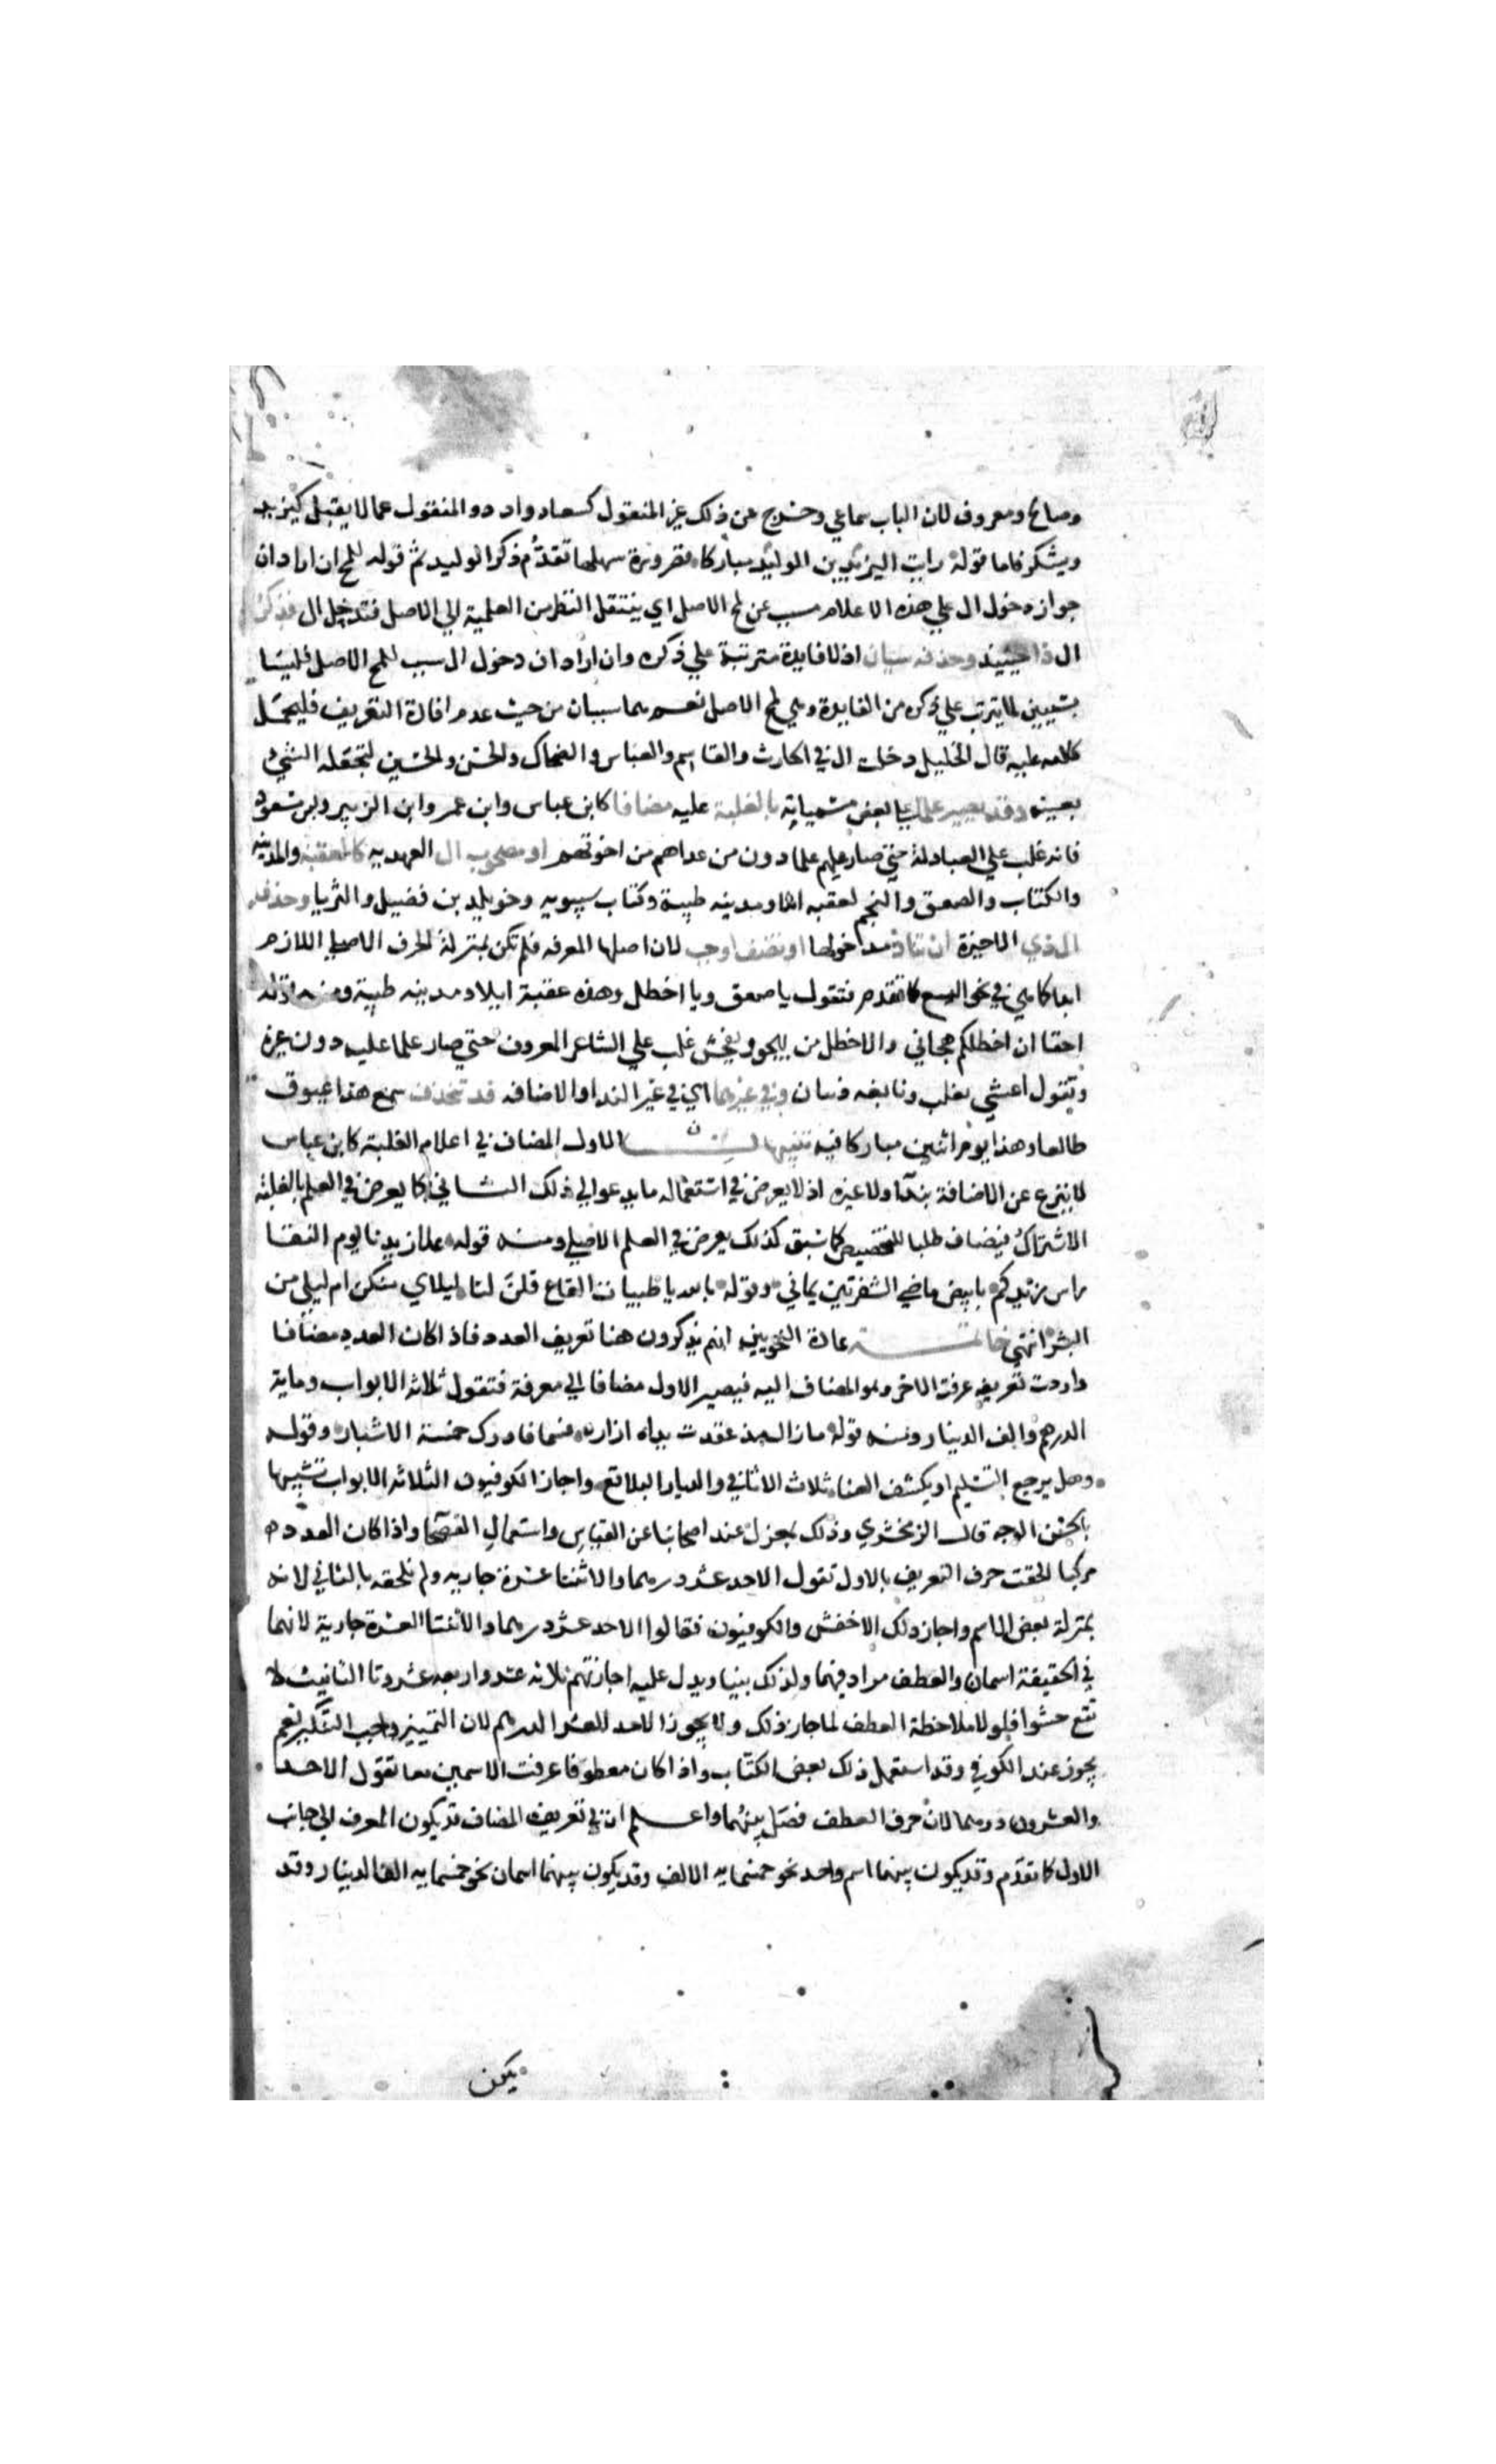 وصالح ومعروف لان الباب سماعي وخرج عن ذلك غير المنقول كسعاد وادد والمنقول عما لا يقبل كيزيد
ويشكر فاما قوله رايت اليزيد بن الوليد مباركا فضرورة سهلها تقدم ذكر الوليد ثم قوله للمح ان اراد ان
جواز دخول ال علي هذه الاعلام مسبب عن لمح الاصل اي ينتقل النظر من العلمية الي الاصل فتدخل ال فذكر
ال ذا حينيذ وحذفه سيان اذ لا فايدة مترتبة علي ذكره وان اراد ان دخول ال سبب للمح الاصل فليسا
بسيين لما يترتب علي ذكره من الفايدة وهي لمح الاصل نعم هما سيان من حيث عدم افادة التعريف فليحمل
كلامه عليه قال الخليل دخلت ال في الحارث والقاسم والعباس والضحاك والحسن والحسين لتجعله الشي
بعينه وقد يصير علما علي بعض مسمياته بالغلبة عليه مضافا كابن عباس وابن عمر وابن الزبير وابن مسعود
فانه غلب علي العبادلة حتي صار عليهم علما دون من عداهم من اخوتهم او مصحوب ال العهديه كالعقبة والمدينه
والكتاب والصعق والنجم لعقبه ايلا ومدينه طيبة وكتاب سيبويه وخويلد بن فضيل والثريا وحذف
ال ذي الاخيرة ان تناد مدخولها او تضف اوجب لان اصلها المعرفه فلم تكن بمنزلة الحرف الاصلي اللازم
ابدا كما هي في نحو اليسع كما تقدم فتقول يا صعق ويا اخطل وهذه عقبة ايلا ومدينه طيبة ومنه قوله
احقا ان اخطلكم هجاني والاخطل من يهجو ويفحش غلب علي الشاعر المعروف حتي صار علما عليه دون غيره
وتقول اعشي تغلب ونابغه ذبيان وفي غيرهما اي في غير الندا والاضافه قد تنحذف سمع هذا عيوق
طالعا وهذا يوم اثنين مباركا فيه تنبيهات الاول المضاف في اعلام الغلبة كابن عباس
لا ينزع عن الاضافة بندا ولا غيره اذ لا يعرض في استعماله ما يدعو الي ذلك الثاني كما يعرض في العلم بالغلبة
الاشتراك فيضاف طلبا للتخصيص كما سبق كذلك يعرض في العلم الاصلي ومنه قوله علا زيدنا يوم النقا
راس زيدكم بابيض ماضي الشفرتين يماني وقوله بالله يا ظبيات القاع قلن لنا ليلاي منكن ام ليلي من
البشر انتهي خاتمة عادة النحويين انهم يذكرون هنا تعريف العدد فاذا كان العدد مضافا
واردت تعريفه عرفت الاخر وهو المضاف اليه فيصير الاول مضافا الي معرفة فتقول ثلاثه الابواب وماية
الدرهم والف الدينار ومنه قوله ما زال مذ عقدت يداه ازاره فسما فادرك خمسة الاشبار وقوله
وهل يرجع التسليم او يكشف العنا ثلاث الاثافي والديار البلاقع واجاز الكوفيون الثلاثه الابواب تشبيها
بالحسن الوجه قال الزمخشري وذلك بمعزل عند اصحابنا عن القياس واستعمال الفصحا واذا كان العدد
مركبا الحقت حرف التعريف بالاول تقول الاحد عشر درهما والاثنتا عشرة جاريه ولم تلحقه بالثاني لانه
بمنزلة بعض الاسم واجاز ذلك الاخفش والكوفيون فقالوا الاحد العشر درهما والاثنتا العشرة جارية لانهما
في الحقيقة اسمان والعطف مراد فيهما ولذلك بنيا ويدل عليه اجازتهم ثلاثه عشر واربعه عشر وتا التانيث لا
تقع حشوا فلولا ملاحظة العطف لما جاز ذلك ولا يجوز الاحد العشر الدرهم لان التمييز واجب التنكير نعم
يجوز عند الكوفي وقد استعمل ذلك بعض الكتاب واذا كان معطوفا عرفت الاسمين معا تقول الاحد
والعشرون درهما لان حرف العطف فصل بينهما واعلم ان في تعريف المضاف قد يكون المعرف الي جانب
الاول كما تقدم وقد يكون بينهما اسم واحد نحو خمسمايه الالف وقد يكون بينهما اسمان نحو خمسمايه الف الدينار وقد
يكون